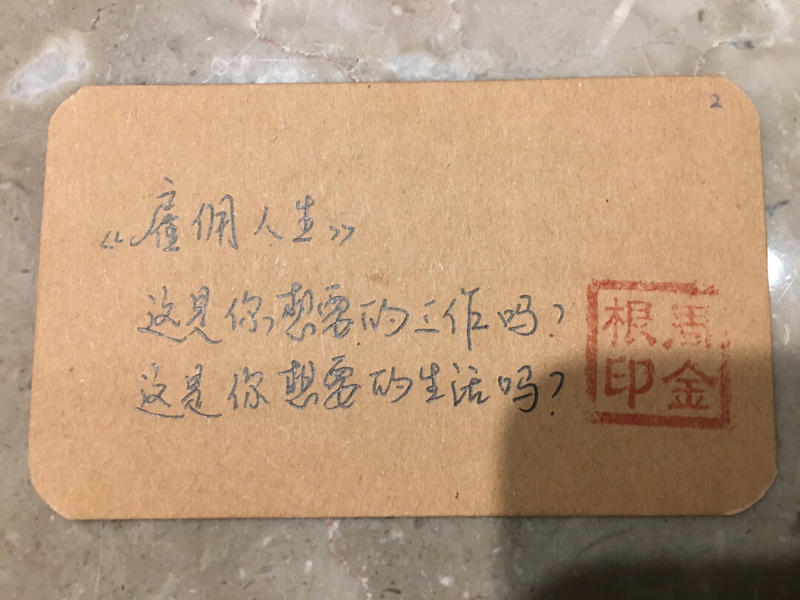 2
《雇佣人生》
这是你想要的工作吗?
这是你想要的生活吗?
周金
根印